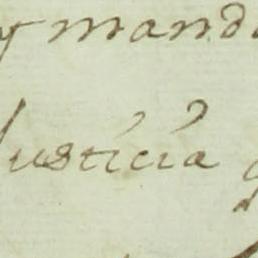 y mand
Justicia